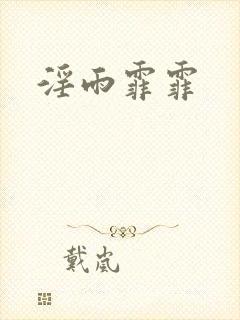 淫雨霏霏
戴岚